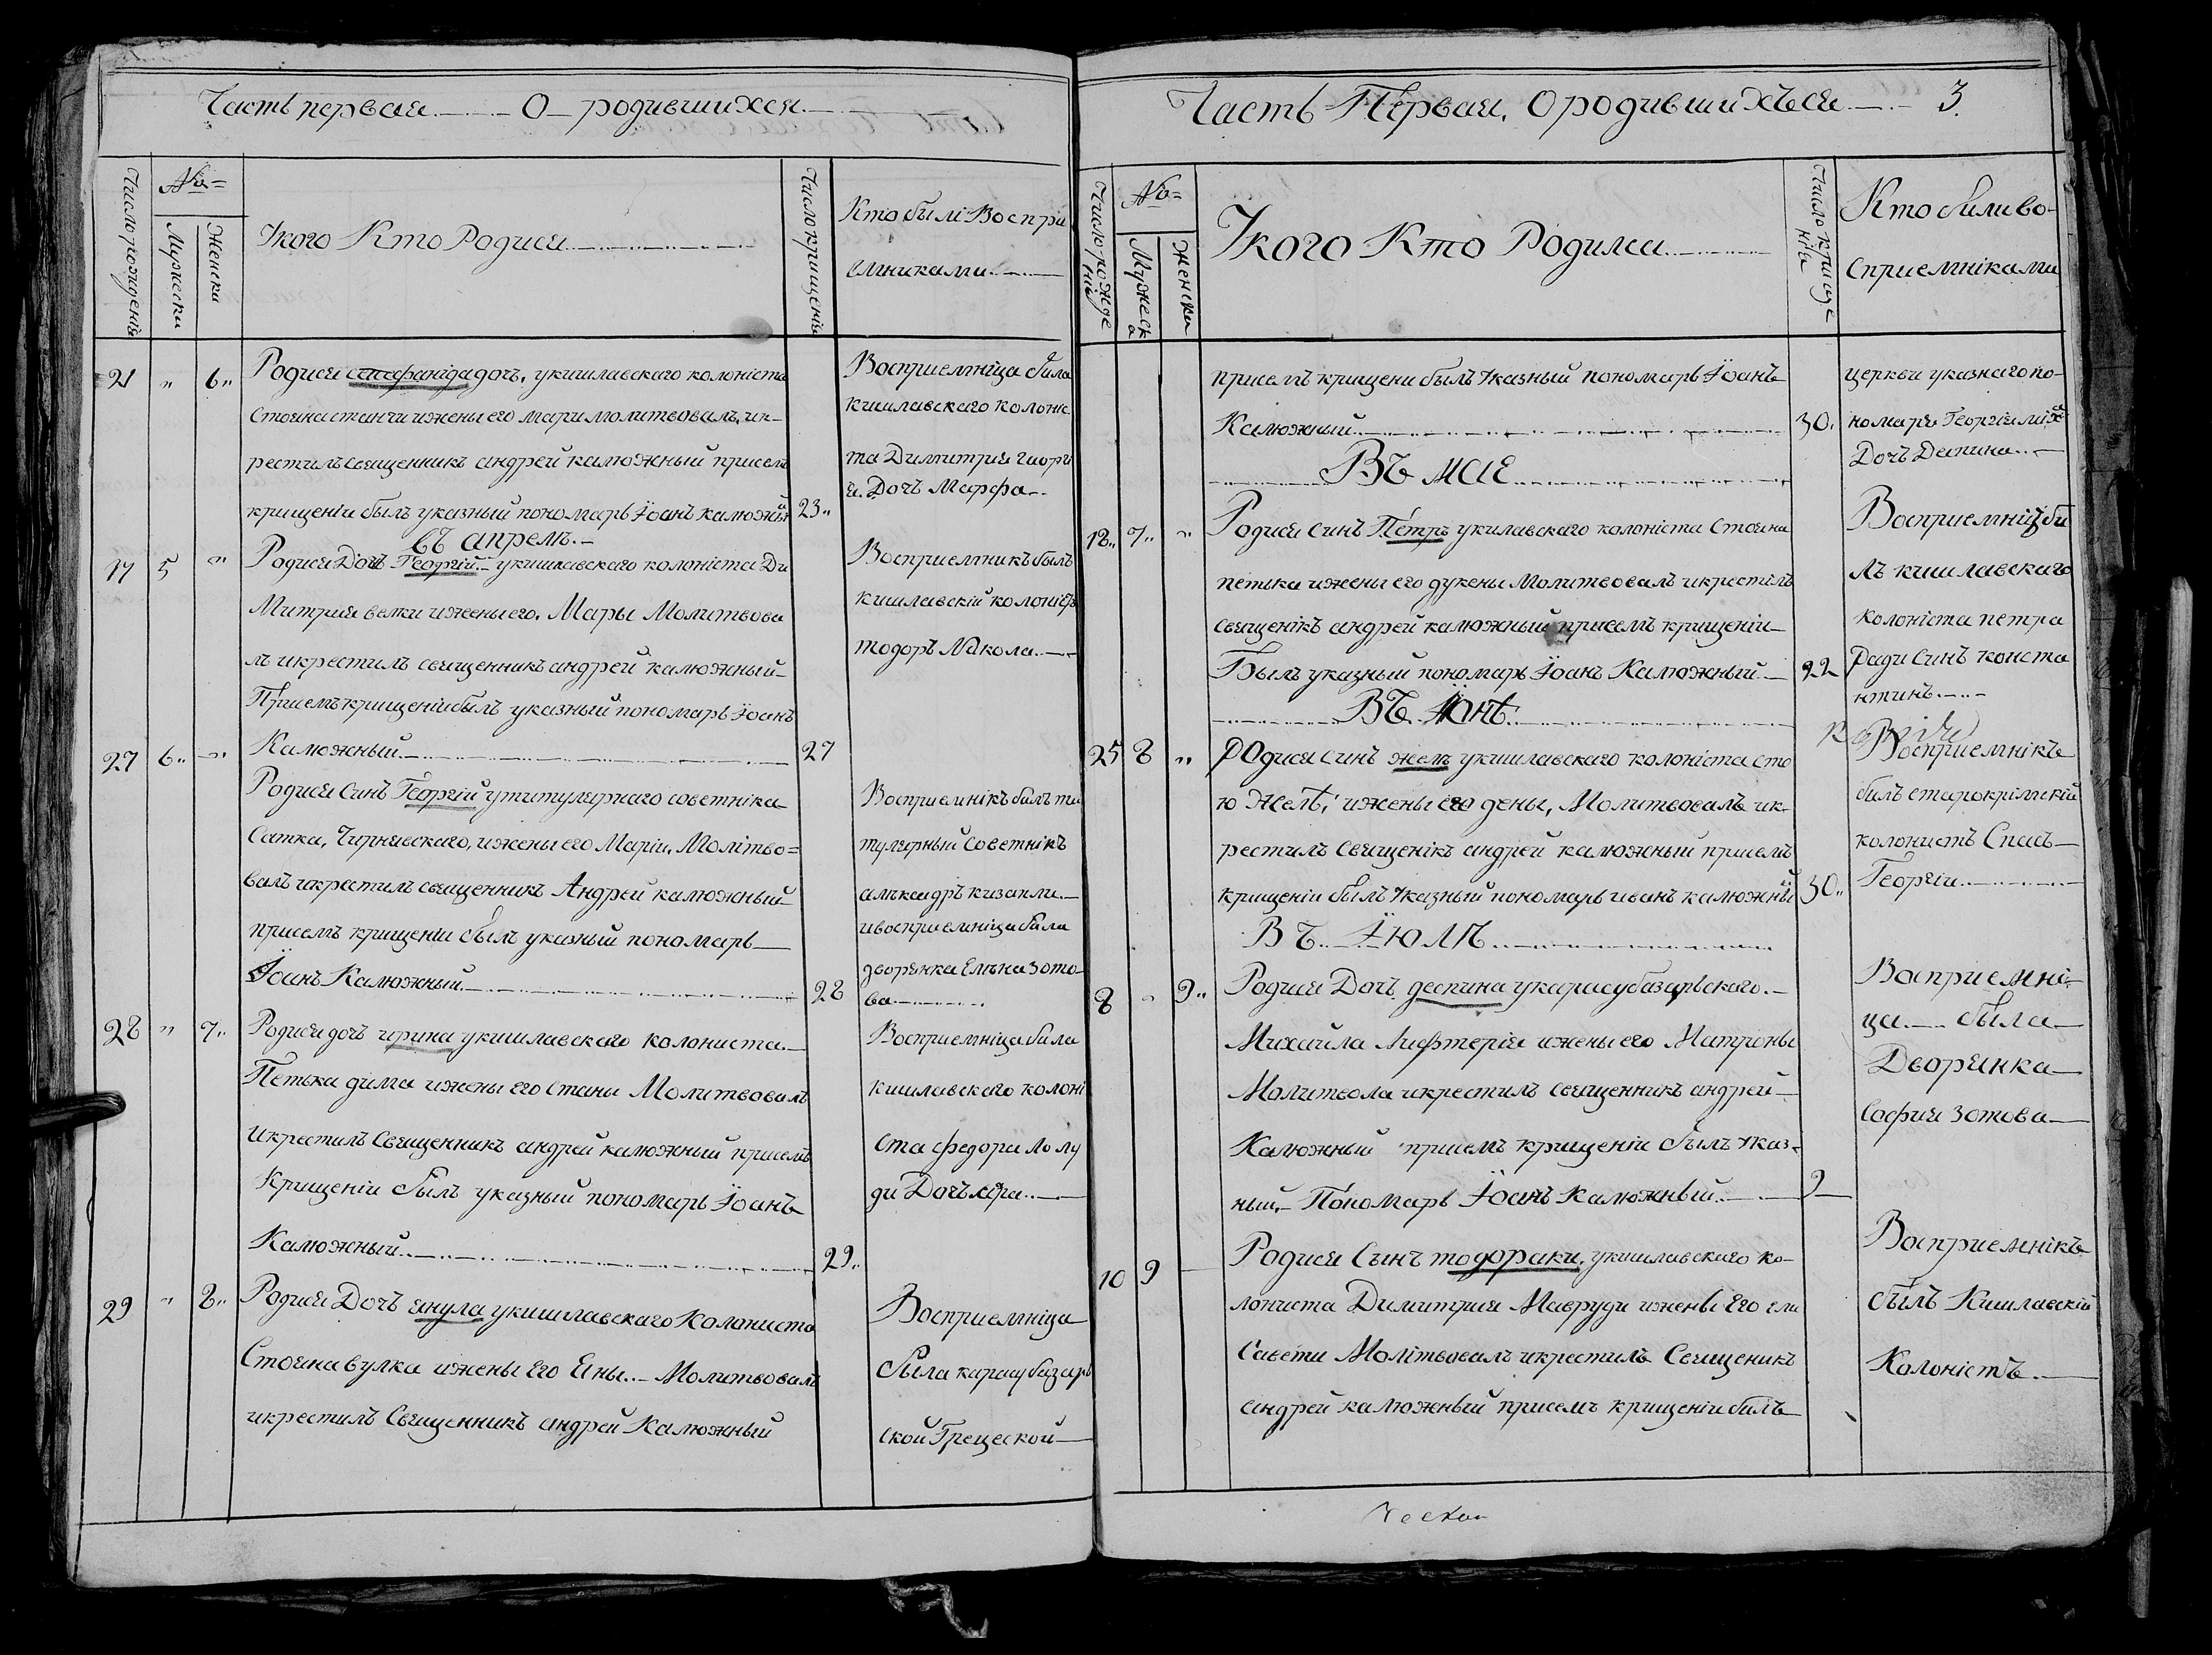 Часть первая. О родившихся.
Число рождениъ
№
Мужески
Женски
Укого Кто Родися
Число крищениъ
Кто былі Воспри
емниками.
21 " 6" Родися стефанида дочъ, укишлавскаго колоніста
Стояна станчи ижены его мари молитвовалъ, ик-
рестилъ священникъ андрей калюжный присемъ
крищеніи былъ указный пономарь Іоанъ калюжный 23"
Восприемніца била
кишлавскаго колоніс
та Димитрия гиорги
я. Дочъ Марфа
въ апрелъ.
17 5 " Родися Дочъ Георгій укишлавскаго колоніста Ди
Митрия велки ижены его, Мары Молитвова
лъ икрестилъ священникъ андрей калюжный
Присемъ крищеніи былъ указный пономарь Іоанъ
27 6" " Калюжный 27
Восприемникъ былъ
кишлавскій колоніст
тодоръ Никола.
Родися Синъ Георгій утитулярнаго советніка
Сатка, Чернявскаго, ижены его Маріи, Молітво=
валъ икрестилъ священникъ Андрей калюжный
присемъ крищеніи былъ указный пономарь
Іоанъ Калюжный 28
Восприемнікъ билъ ти
тулярный советнікъ
алькадръ кизапли.
ивосприемніца била
дворянка Елъна зото-
ва
28 " 7" Родися дочъ ирина укишлавскаго колониста.
Петька дима ижены его Стани Молитвовалъ
икрестилъ Священникъ андрей калюжный присемъ
Крищеніи былъ указный пономарь Іоанъ
Калюжный 29"
Восприемніца била
кишлавскаго колоні
ста федора лолу
ди Дочъ
29 " 8" Родися Дочъ янула укишлавскаго Колониста
Стояна вулка ижены Его Яны. Молитвовалъ
икрестилъ Священникъ андрей Калюжный
Восприемніца
была карасубазарь
ской Грецеской
Часть Первая, О родившихъся 3.
Число рожде
ния
№
Мужеск
а
Женски
Укого Кто Родилса
Число крище
нія
Кто били во-
сприемніками
присемъ крищени былъ Указный пономарь Іоанъ
Калюжный 30.
церкви указнаго по-
номаря Георгія
Дочъ Деспина.
Въ мае
18" 7" " Родися Синъ Петръ укилавскаго колоніста Стояна
петька ижены его дукены Молитвовалъ икрестилъ
священікъ андрей калюжный присемъ крищеніи
Былъ указный пономарь Іоанъ Калюжный 22
Восприемніц би
лъ кишлавскаго
колоніста петра
Ради Синъ конста
нтинъ
ВЪ Іюнѣ
25 8 " Родися Синъ желъ укишлавскаго колоніста сто
ю Желѣ, ижены его дены, Молитвовалъ ик-
рестилъ Священікъ андрей калюжный присемъ
крищеніи былъ Указный пономарь иванъ калюжный 30"
Восприемнікъ
билъ старокрімскій
колонистъ Спасъ
Георгіи
ВЪ Іюлъ
8 " 9" Родися Дочъ деспина укарасубазарьскаго.
Михайла Лифтерія ижены его Матроны
Молитвола икрестилъ священникъ андрей
Калюжный присемъ крищеніи былъ Указ-
ный. Пономарь Іоанъ Калюжный. 9
Восприемні-
ца была
Дворянка
София зотова
10 9 Родися Сынъ тодораки, укишлавскаго ко-
лониста Димитрия Мавруди жены Его ели
Савети Молітвовалъ икрестилъ Священикъ
андрей калюжный присемъ крищеніи билъ
Восприемнікъ
былъ Кишлавскій
Колоністъ.